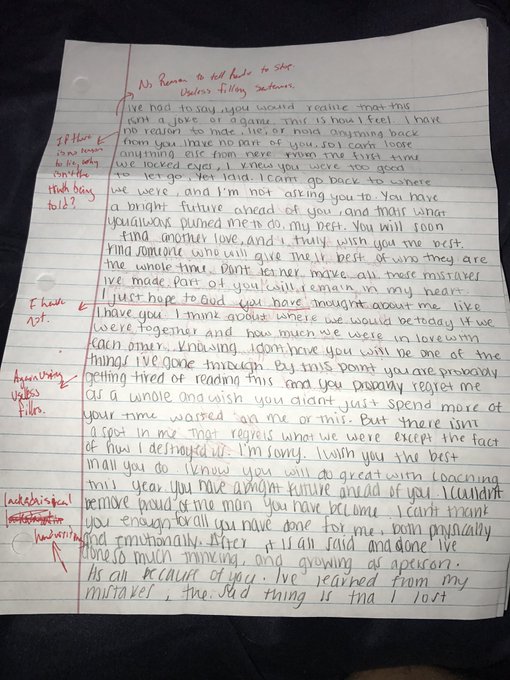 No Reason to tell Reader to stop.
Useless filling sentences.
I've had to say, you would realize that this
isnt a joke, or a game. This is how I feel. I have
no reason to hide, lie, or hold anything back
from you. I have no part of you, so I cant loose
anything else from here. From the first time
we locked eyes, I knew you were too good
to let go. Yet I aid. I cant go back to where
we were, and I'm not asking you to. You have
a bright future ahead of you, and thats what
you always pushed me to do, my best. You will soon
find another love, and I truly wish you the best.
Find someone who will give the best of who they are
the whole time. Dont let her make all these mistakes
ive made. Part of you will remain in my heart.
I just hope to God you have thought about me like
I have you. I think about where we would be today if we
were together and how much we were in love with
each other. Knowing I dont have you will be one of the
things I've gone through. By this point you are probably
getting tired of reading this and you probably regret me
as a whole and wish you didnt just spend more of
your time wasted on me or this. But there isnt
a spot in me that regrets what we were except the fact
of how I destroyed it. I'm sorry. I wish you the best
in all you do. I know you will do great with coaching
this year. You have a bright future ahead of you. I couldn't
be more proud of the man you have become. I cant thank
you enough for all you have done for me, both physically
and emotionally. After it is all said and done Ive
done so much thinking, and growing as a person.
Its all because of you. Ive learned from my
mistakes, the sad thing is tha I lost
If there
is no reason
to lie, why
isn't the
truth being
told?
I have
not.
Again using
useless
fillers.